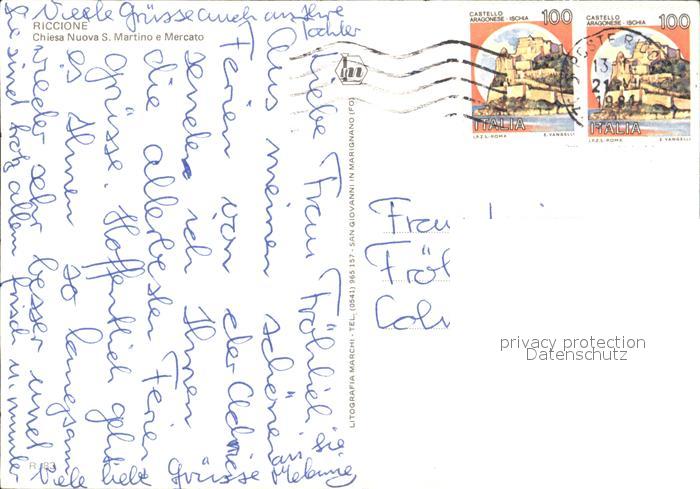 RICCIONE
Chiesa Nuova S. Martino e Mercato
Viele Grüsse auch an Ihre
Tochter
Liebe Frau Fröhlich
Aus meinen schönen
Ferien von der Adria
sende ich Ihnen
die allerbesten Ferien
grüsse. Hoffentlich geht
es Ihnen so langsam
wieder sehr besser und
Sie sind trotz allem frisch u. munter
Viele liebe Grüsse an Sie
Melanie
R 183
LITOGRAFIA MARCHI - TEL. (0541) 965 157 - SAN GIOVANNI IN MARIGNANO (FO)
CASTELLO
ARAGONESE - ISCHIA
100
ITALIA
I.P.Z.S. - ROMA
E. VANGELLI
CASTELLO
ARAGONESE - ISCHIA
100
ITALIA
I.P.Z.S. - ROMA
E. VANGELLI
1981
Frau
Fröl
privacy protection
Datenschutz